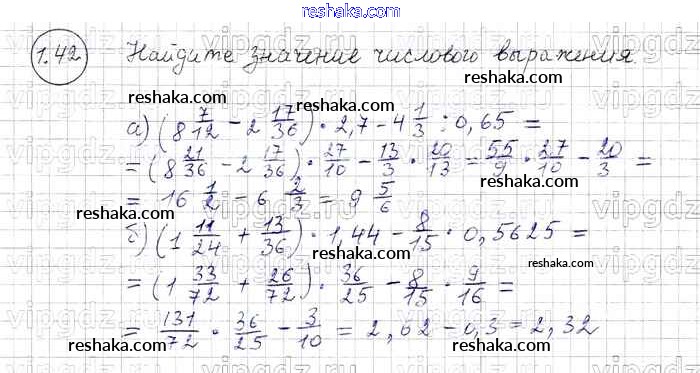 reshaka.com
1.42 Найдите значение числового выражения.
reshaka.com reshaka.com
а) (8 7/12 − 2 17/36) · 2,7 − 4 1/3 : 0,65 =
= (8 21/36 − 2 17/36) · 27/10 − 13/3 · 20/13 = 55/9 · 27/10 − 20/3 =
reshaka.com
= 16 1/2 − 6 2/3 = 9 5/6
reshaka.com reshaka.com
б) (1 11/24 + 13/36) · 1,44 − 8/15 · 0,5625 =
reshaka.com
= (1 33/72 + 26/72) · 36/25 − 8/15 · 9/16 =
reshaka.com
= 131/72 · 36/25 − 3/10 = 2,62 − 0,3 = 2,32
reshaka.com reshaka.com